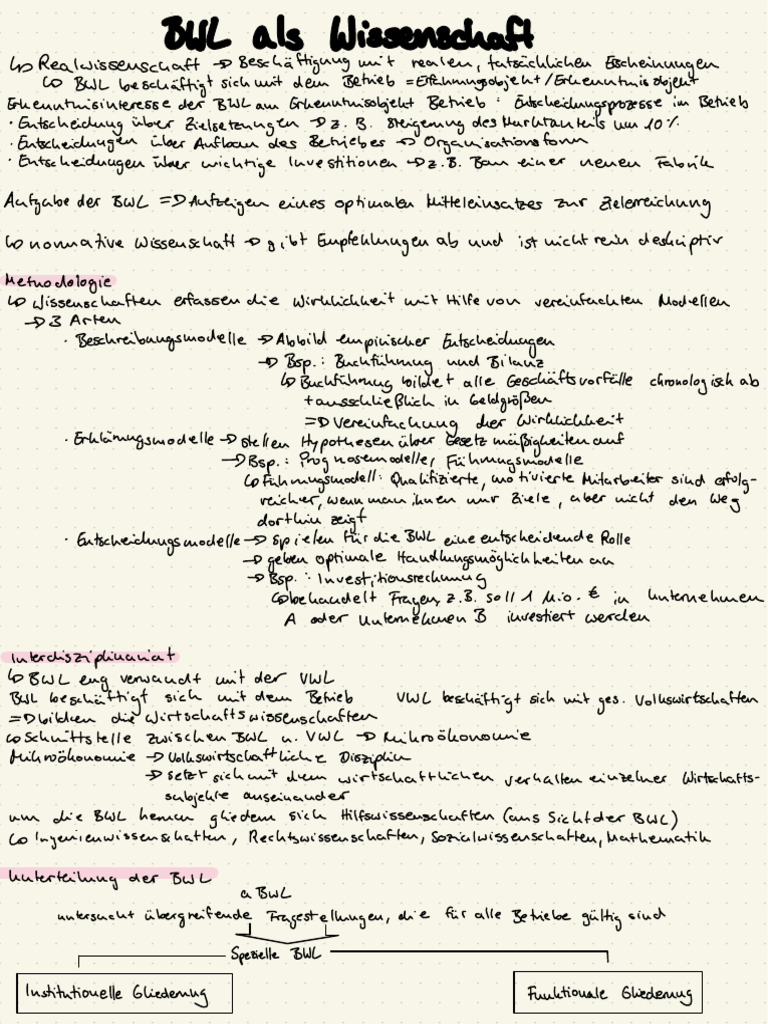 BWL als Wissenschaft
↳ Realwissenschaft → Beschäftigung mit realen, tatsächlichen Erscheinungen
↳ BWL beschäftigt sich mit dem Betrieb = Erfahrungsobjekt / Erkenntnisobjekt
Erkenntnisinteresse der BWL am Erkenntnisobjekt Betrieb : Entscheidungsprozesse im Betrieb
· Entscheidung über Zielsetzungen → z. B. Steigerung des Marktanteils um 10%
· Entscheidungen über Aufbau des Betriebes → Organisationsform
· Entscheidungen über wichtige Investitionen → z.B. Bau einer neuen Fabrik
Aufgabe der BWL => Aufzeigen eines optimalen Mitteleinsatzes zur Zielerreichung
↳ normative Wissenschaft → gibt Empfehlungen ab und ist nicht rein deskriptiv
Methodologie
↳ Wissenschaften erfassen die Wirklichkeit mit Hilfe von vereinfachten Modellen
→ 3 Arten
· Beschreibungsmodelle → Abbild empirischer Entscheidungen
→ Bsp.: Buchführung und Bilanz
↳ Buchführung bildet alle Geschäftsvorfälle chronologisch ab
+ ausschließlich in Geldgrößen
=> Vereinfachung der Wirklichkeit
· Erklärungsmodelle → stellen Hypothesen über Gesetzmäßigkeiten auf
→ Bsp.: Prognosemodelle, Führungsmodelle
↳ Führungsmodell: Qualifizierte, motivierte Mitarbeiter sind erfolg-
reicher, wenn man ihnen nur Ziele, aber nicht den Weg
dorthin zeigt
· Entscheidungsmodelle → spielen für die BWL eine entscheidende Rolle
→ geben optimale Handlungsmöglichkeiten an
→ Bsp. : Investitionsrechnung
↳ behandelt Fragen, z.B. soll 1 Mio. € in Unternehmen
A oder Unternehmen B investiert werden
Interdisziplinariat
↳ BWL eng verwandt mit der VWL
BWL beschäftigt sich mit dem Betrieb VWL beschäftigt sich mit ges. Volkswirtschaften
=> bilden die Wirtschaftswissenschaften
↳ Schnittstelle zwischen BWL u. VWL → Mikroökonomie
Mikroökonomie → Volkswirtschaftliche Disziplin
→ setzt sich mit dem wirtschaftlichen verhalten einzelner Wirtschafts-
subjekte auseinander
um die BWL herum gliedern sich Hilfswissenschaften (aus Sicht der BWL)
↳ Ingenieurwissenschaften, Rechtswissenschaften, Sozialwissenschaften, Mathematik
Unterteilung der BWL
a BWL
untersucht übergreifende Fragestellungen, die für alle Betriebe gültig sind
Spezielle BWL
Institutionelle Gliederung
Funktionale Gliederung